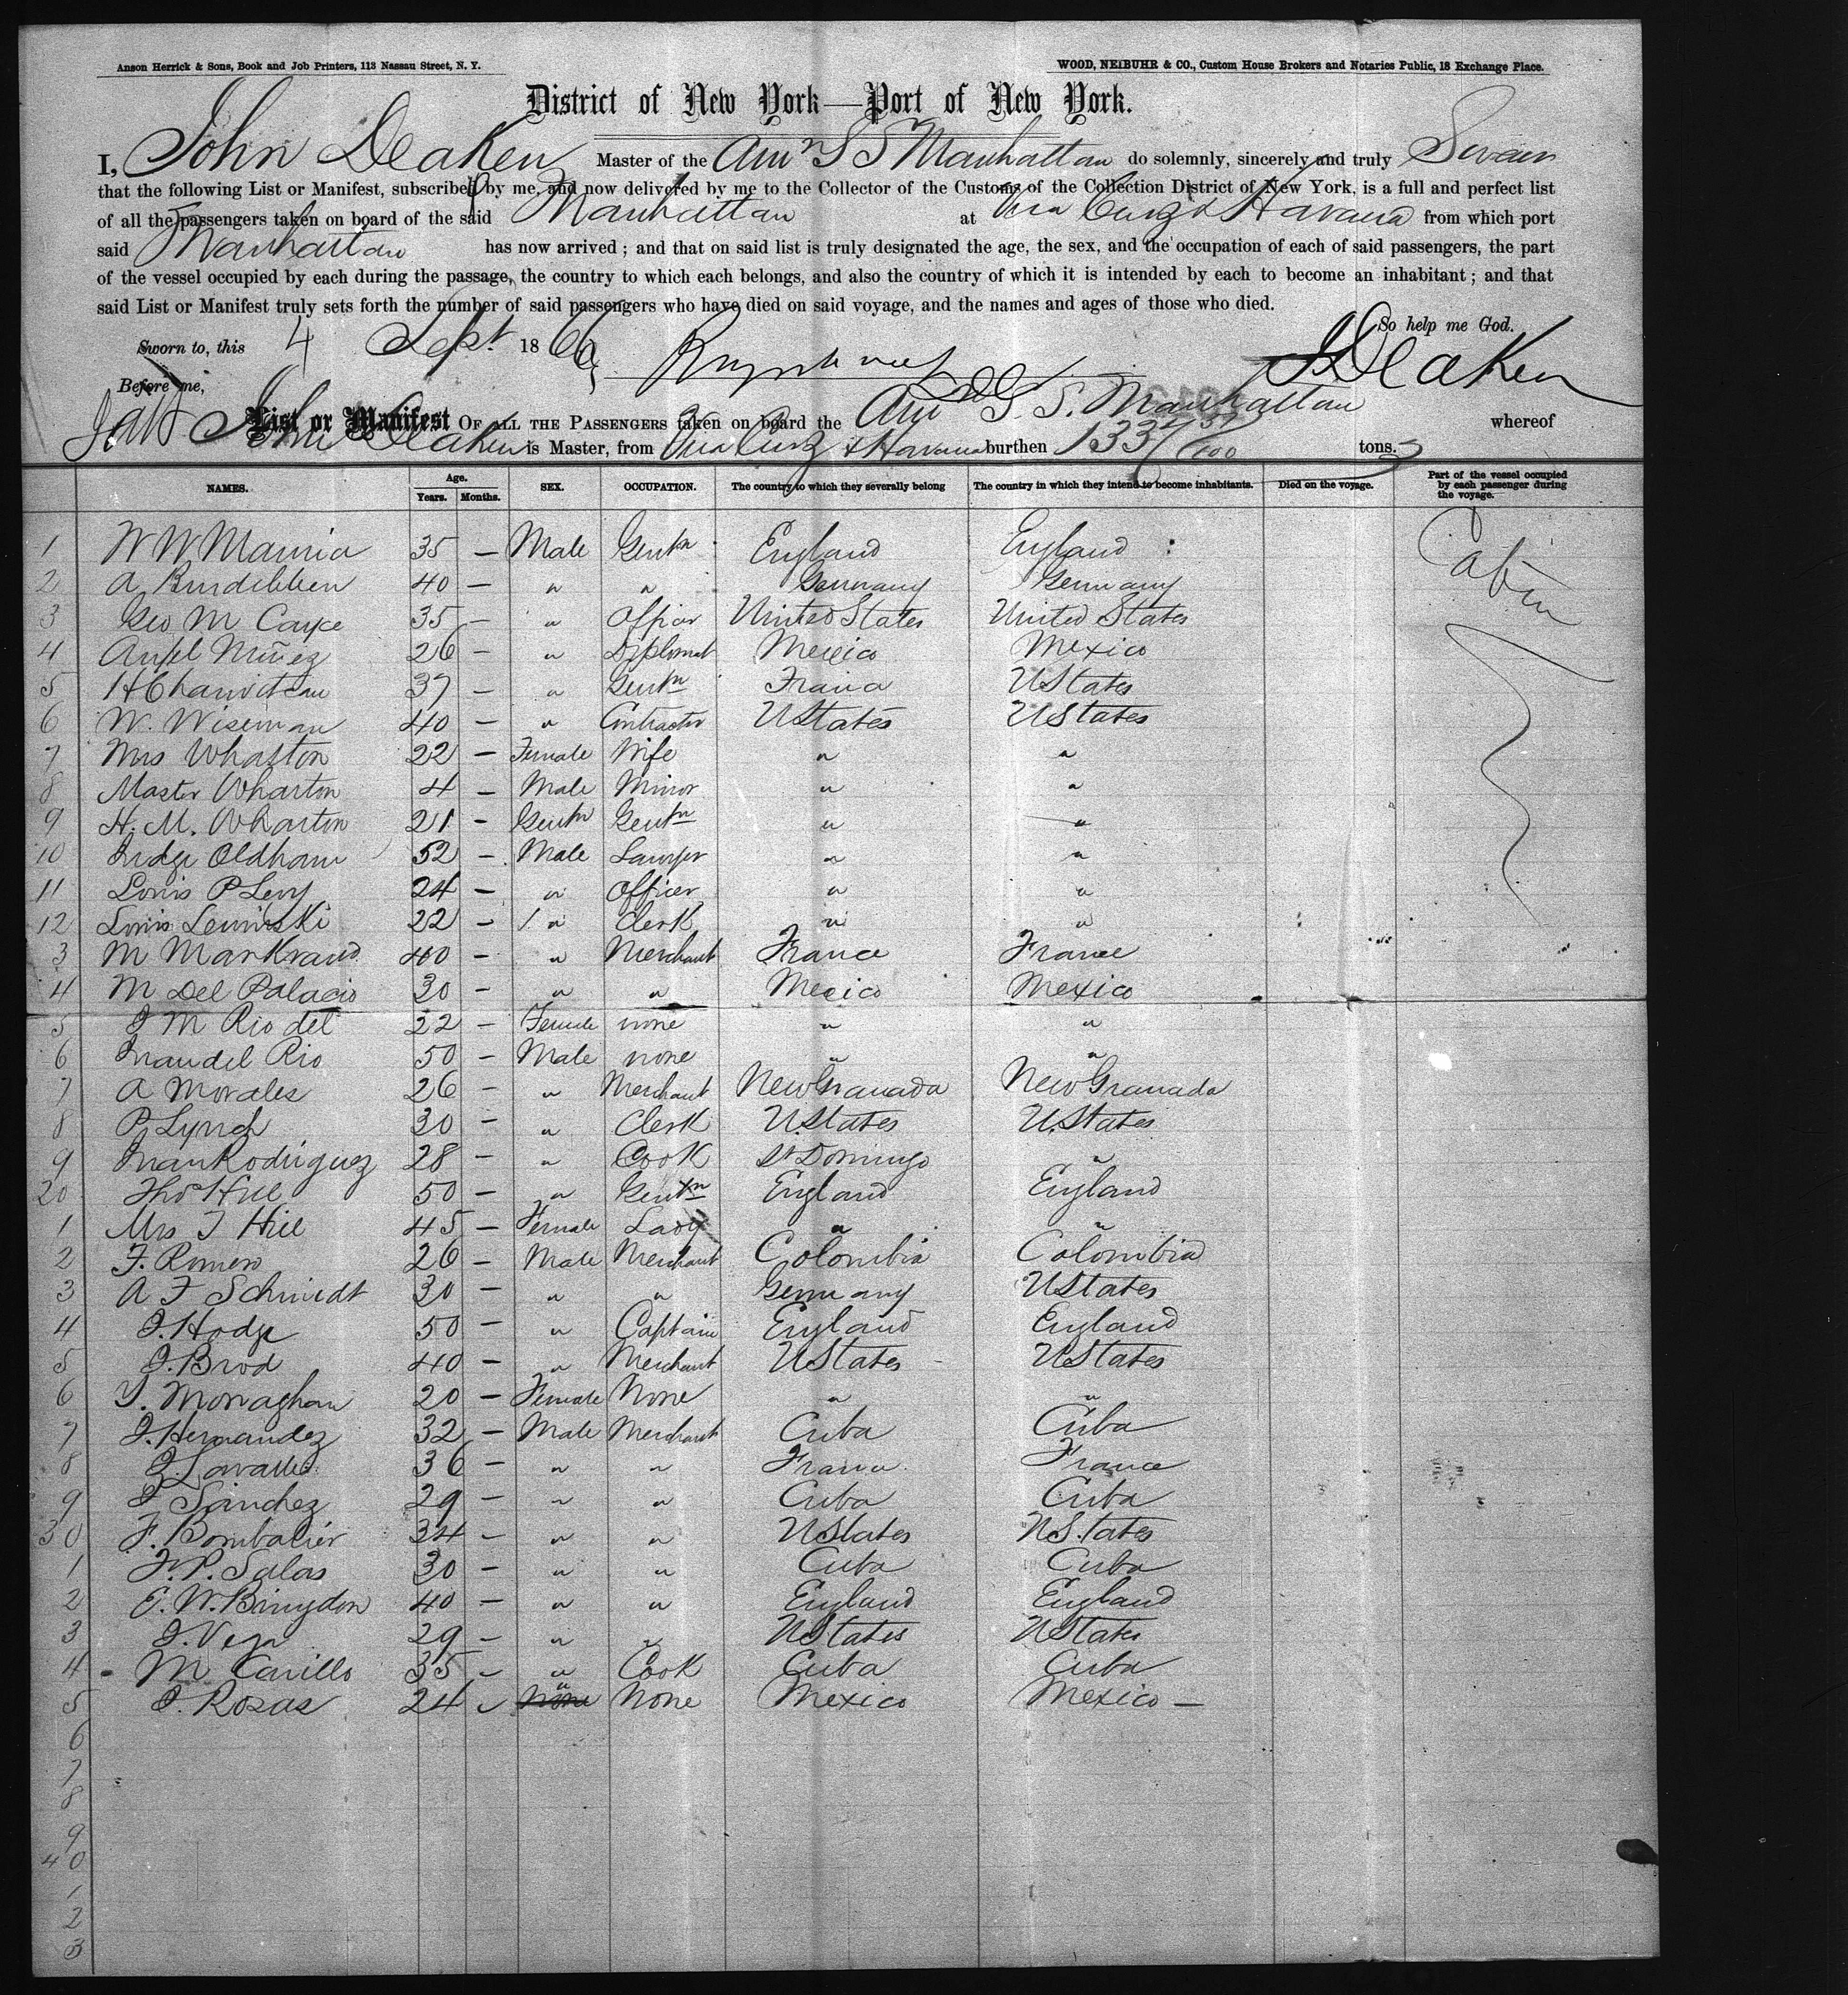 Anson Herrick & Sons, Book and Job Printers, 113 Nassau Street, N. Y.
WOOD, NEIBUHR & CO., Custom House Brokers and Notaries Public, 18 Exchange Place.
District of New York—Port of New York.
I, John Deaken Master of the Amn S S Manhattan do solemnly, sincerely and truly Swear
that the following List or Manifest, subscribed by me, and now delivered by me to the Collector of the Customs of the Collection District of New York, is a full and perfect list
of all the passengers taken on board of the said Manhattan at Vera Cruz & Havana from which port
said Manhattan has now arrived ; and that on said list is truly designated the age, the sex, and the occupation of each of said passengers, the part
of the vessel occupied by each during the passage, the country to which each belongs, and also the country of which it is intended by each to become an inhabitant ; and that
said List or Manifest truly sets forth the number of said passengers who have died on said voyage, and the names and ages of those who died.
So help me God.
Sworn to, this 4 Sept 1866
J Deaken
Before me,
List or Manifest OF ALL THE PASSENGERS taken on board the Am S. S. Manhattan whereof
John Deaken is Master, from Vera Cruz & Havana burthen 1337 57/100 tons.
NAMES. Age. Years. Months. SEX. OCCUPATION. The country to which they severally belong The country in which they intend to become inhabitants. Died on the voyage. Part of the vessel occupied by each passenger during the voyage.
1 W W 35 — Male Gentn England England Cabin
2 A 40 — " " Germany Germany
3 Geo M Cayce 35 — " Officer United States United States
4 Angel Nuñez 26 — " Diplomat Mexico Mexico
5 H 37 — " Gentn France UStates
6 W. Wiseman 40 — " Contractor UStates UStates
7 Mrs Wharton 22 — Female Wife " "
8 Master Wharton 4 — Male Minor " "
9 H. M. Wharton 21 — Gentn Gentn " "
10 Judge Oldham 52 — Male Lawyer " "
11 Louis P Levy 24 — " Officer " "
12 Louis Lewinski 22 — " Clerk " "
3 M Markrand 40 — " Merchant France France
4 M Del Palacio 30 — " " Mexico Mexico
5 J M Rio del 22 — Female none " "
6 Juan del Rio 50 — Male none " "
7 A Morales 26 — " Merchant New Granada New Granada
8 P Lynch 30 — " Clerk U.States U.States
9 Juan Rodriguez 28 — " Cook St Domingo "
20 Tho Hill 50 — " Gentn England England
1 Mrs T Hill 45 — Female Lady " "
2 F. Romero 26 — Male Merchant Colombia Colombia
3 A F Schmidt 30 — " " Germany UStates
4 J. Hodge 50 — " Captain England England
5 J. Brod 40 — " Merchant UStates UStates
6 Y. Monaghan 20 — Female None " "
7 J. Hernandez 32 — Male Merchant Cuba Cuba
8 J. Lavalle 36 — " " France France
9 J Sanchez 29 — " " Cuba Cuba
30 F. Bombalier 34 — " " UStates US.tates
1 F. P. Salas 30 — " " Cuba Cuba
2 E. W. Bingdon 40 — " " England England
3 J. Vega 29 — " " UStates UStates
4 M Carillo 35 — " Cook Cuba Cuba
5 J. Rosas 24 — " None Mexico Mexico —
6
7
8
9
40
1
2
3